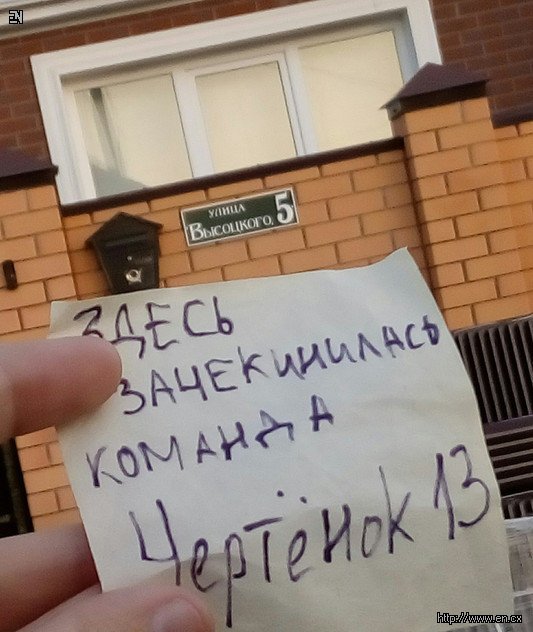 EN
УЛИЦА
ВЫСОЦКОГО, 5
ЗДЕСЬ
ЗАЧЕКИНИЛАСЬ
КОМАНДА
Чертёнок 13
http://www.en.cx